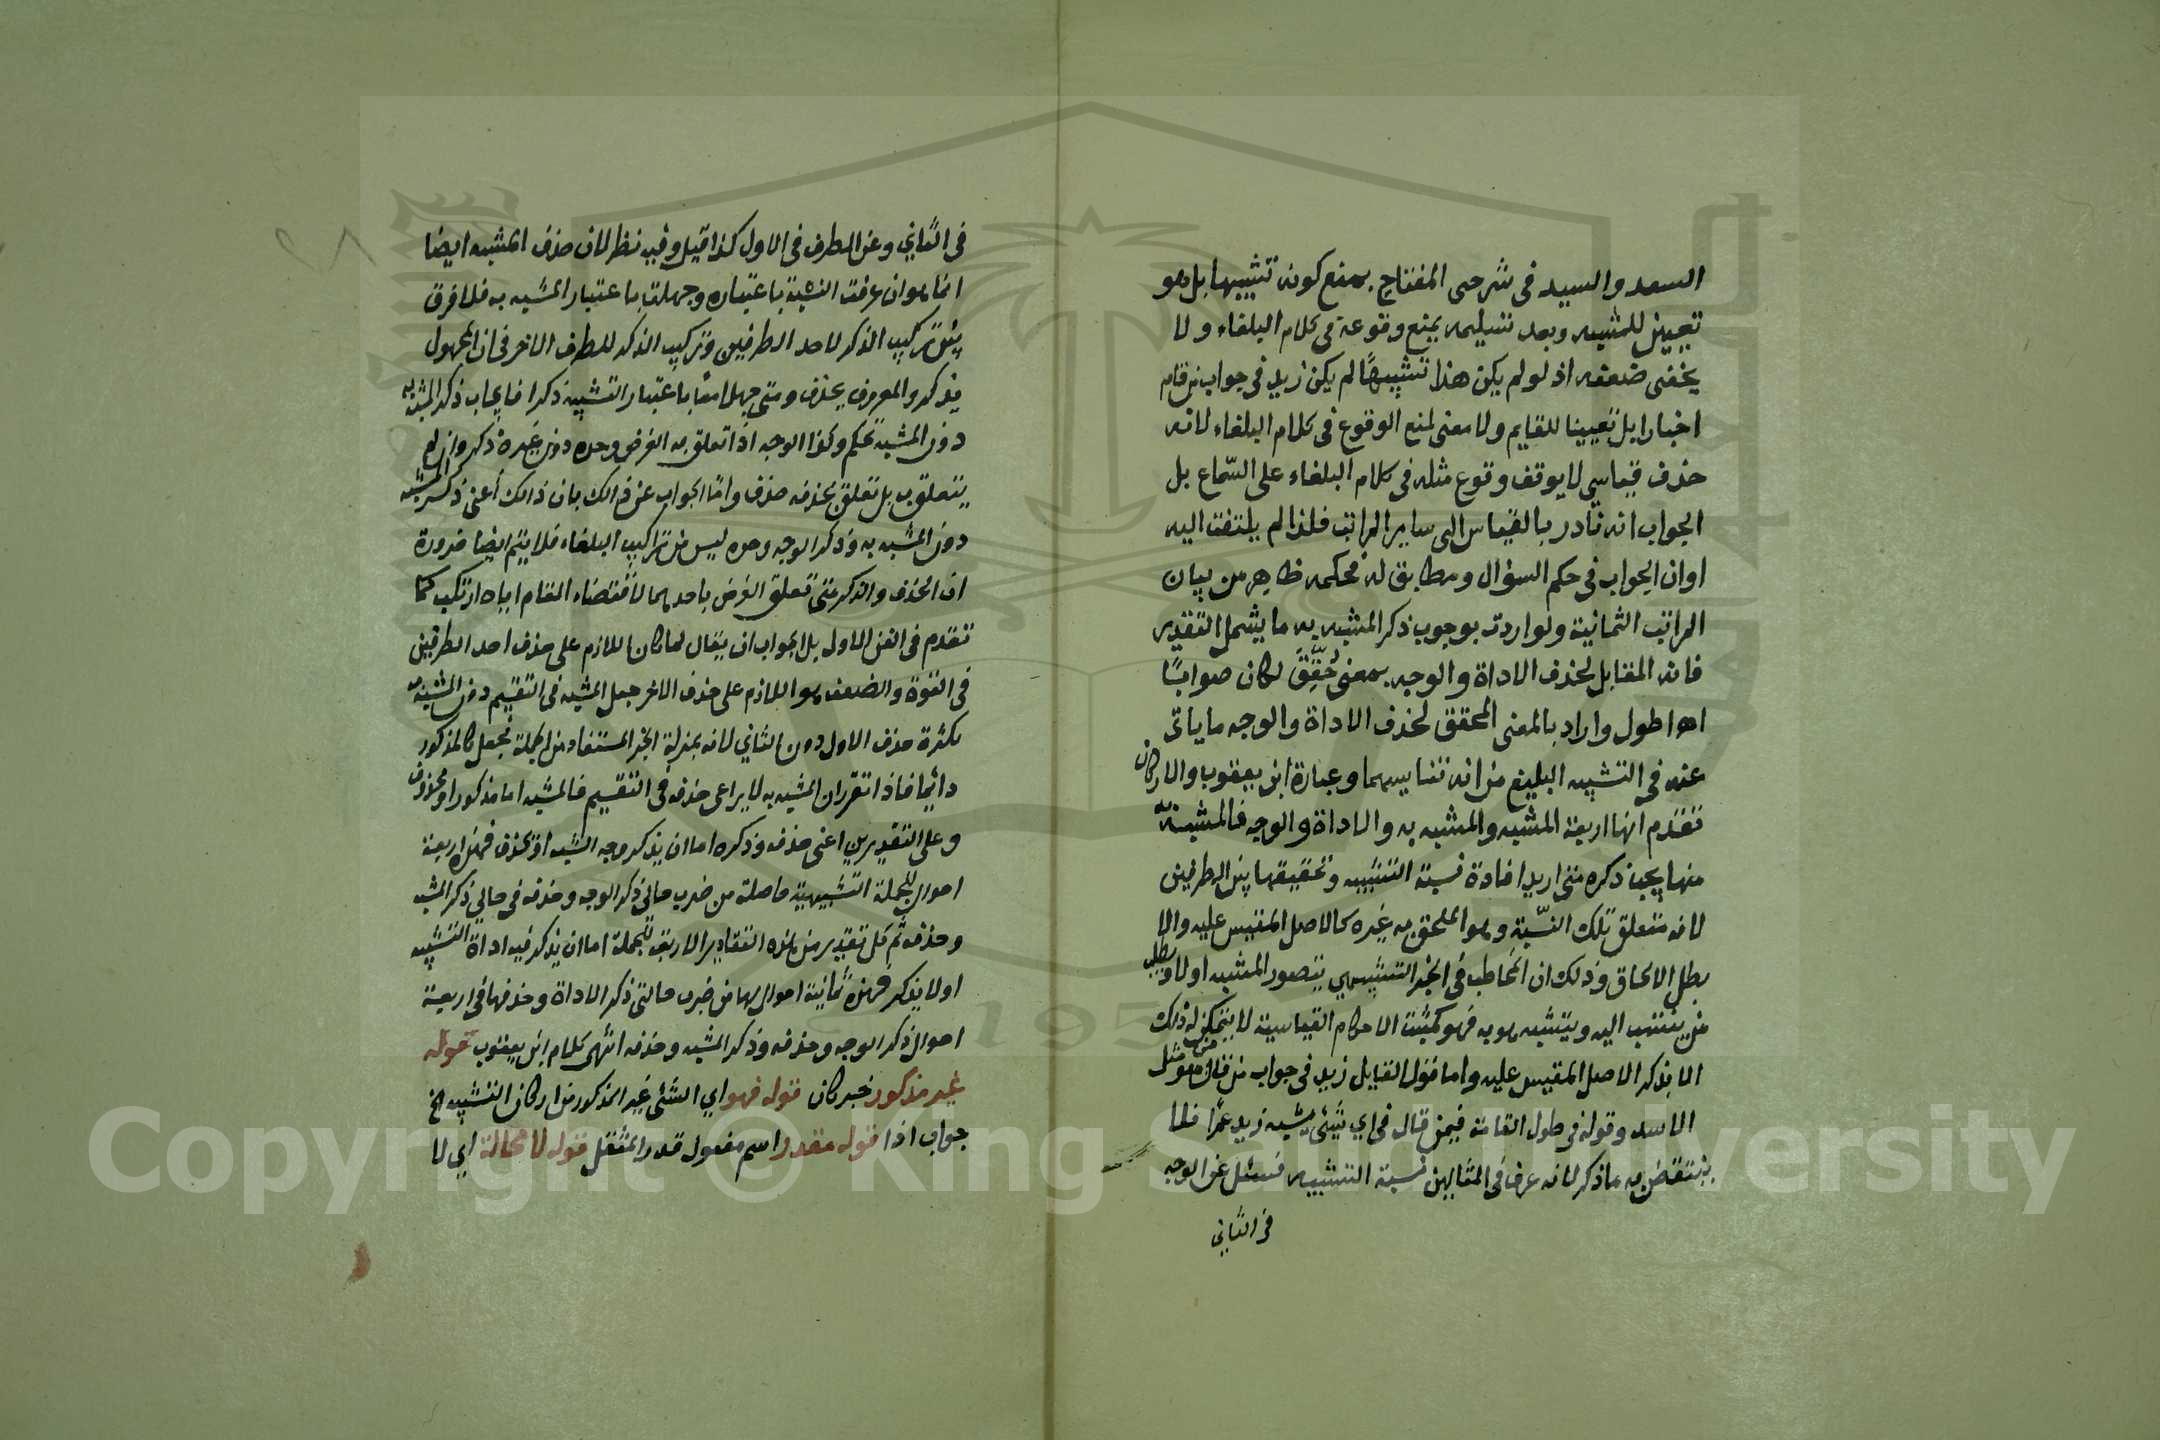 السعد والسيد فى شرحى المفتاح بمنع كونه تشبيها بل هو
تعيين للمشبه وبعد تسليمه يمنع وقوعه فى كلام البلغاء ولا
يخفى ضعفه اذ لو لم يكن هذا تشبيهًا لم يكن زيد فى جواب من قام
اخبارا بل تعيينا للقايم ولا معنى لمنع الوقوع فى كلام البلغاء لانه
حذف قياسي لا يوقف وقوع مثله فى كلام البلغاء على السّماع بل
الجواب انه نادر بالقياس الى ساير المراتب فلذا لم يلتفت اليه
او ان الجواب فى حكم السؤال ومطابق له فحكمه ظاهر من بيان
المراتب الثمانية ولو اردت بوجوب ذكر المشبه به ما يشمل التقدير
فانه المقابل لحذف الاداة والوجه بمعنى لكان صوابًا
اه اطول واراد بالمعنى المحقق لحذف الاداة والوجه ما يأتى
عنه فى التشبيه البليغ من انه تناسيهما وعبارة ابن يعقوب والاركان
تقدم انها اربعة المشبه والمشبه به والاداة والوجه فالمشبه به
منها يجب ذكره متى اريد افادة نسبة التشبيه وتحقيقها بين الطرفين
لانه متعلق تلك النسّبة وهو الملحق به غيره كالاصل المقيس عليه والا
بطل الالحاق وذلك ان المخاطب فى الخبر التشبيهي يتصور المشبه اولا ويطلب
من ينتسب اليه ويتشبه هو به فهو كمثبت الاحكام القياسية لا يتمكن له ذلك
الا بذكر الاصل المقيس عليه واما قول القايل زيد فى جواب من قال من هو مثل
الاسد وقوله فى طول القامة فيمن قال فى اي شيئ يشبه زيد عمرًا فلا
ينتقض به ما ذكر لانه عرف فى المثالين نسبة التشبيه فسئل عن الوجه
فى الثاني
فى الثاني وعن الطرف فى الاول كذا قيل وفيه نظر لان حذف المشبه ايضا
انما هو ان عرفت النسبة باعتباره وجهلت باعتبار المشبه به فلا فرق
بين تركيب الذكر لاحد الطرفين وتركيب الذكر للطرف الاخر فى ان المجهول
يذكر والمعروف يحذف ومتى جهلا معا باعتبار التشبيه ذكرا فايجاب ذكر المشبه به
دون المشبه تحكم وكذا الوجه اذا تعلق به الغرض وحده دون غيره ذكر وان لم
يتعلق به بل تعلق بحذفه حذف واما الجواب عن ذلك بان ذلك أعنى ذكر المشبه
دون المشبه به وذكر الوجه وحده ليس من تراكيب البلغاء فلا يتم ايضا ضرورة
ان الحذف والذكر متى تعلق الغرض باحدهما لاقتضاء المقام اياه ارتكب كما
تقدم فى الفن الاول بل الجواب ان يقال لما كان اللازم على حذف احد الطرفين
فى القوة والضعف هو اللازم على حذف الاخر جعل المشبه فى التقسيم دون المشبه به
لكثرة حذف الاول دون الثاني لانه بمنزلة الخبر المستفاد من الجملة فجعل كالمذكور
دائما فاذا تقرر ان المشبه به لا يراعى حذفه فى التقسيم فالمشبه اما مذكور او محذوف
وعلى التقديرين اعنى حذفه وذكره اما ان يذكر وجه الشبه او يحذف فهذه اربعة
احوال للجملة التشبيهية حاصلة من ضرب حالى ذكر الوجه وحذفه فى حالي ذكر المشبه
وحذفه ثم كل تقدير من هذه التقادير الاربعة للجملة اما ان يذكر فيه اداة التشبيه
اولا يذكر فهذه ثمانية احوال لها من ضرب حالتى ذكر الاداة وحذفها فى اربعة
احوال ذكر الوجه وحذفه وذكر المشبه وحذفه انتهى كلام ابن يعقوب قوله
غير مذكور خبر كان قوله فهو اي الشئ غير المذكور من اركان التشبيه الخ
جواب اذا قوله مقدر اسم مفعول قدر المثقل قوله لا محالة اي لا
Copyright © King Saud University